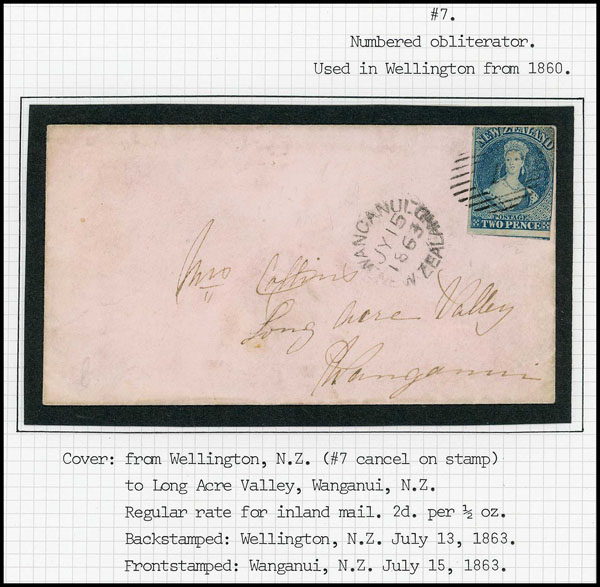 #7.
Numbered obliterator.
Used in Wellington from 1860.
NEW ZEALAND
POSTAGE
TWO PENCE
WANGANUI
JY 15
1863
NEW ZEALAND
Mrs Collins
Long Acre Valley
Wanganui
Cover: from Wellington, N.Z. (#7 cancel on stamp)
to Long Acre Valley, Wanganui, N.Z.
Regular rate for inland mail. 2d. per ½ oz.
Backstamped: Wellington, N.Z. July 13, 1863.
Frontstamped: Wanganui, N.Z. July 15, 1863.